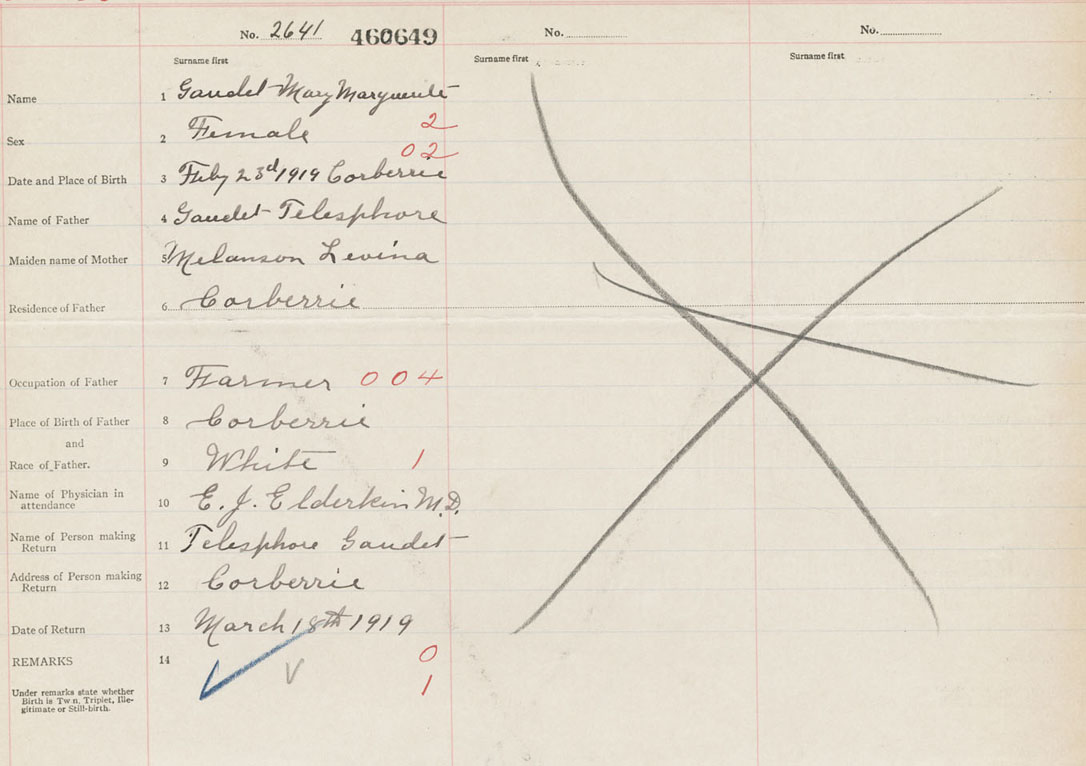 No. 2641 460649 No. No.
Surname first Surname first Surname first
Name 1 Gaudet Mary Marguerite
Sex 2 Female 2
02
Date and Place of Birth 3 Feby 23d 1919 Corberrie
Name of Father 4 Gaudet Telesphore
Maiden name of Mother 5 Melanson Levina
Residence of Father 6 Corberrie
Occupation of Father 7 Farmer 004
Place of Birth of Father 8 Corberrie
and
Race of Father. 9 White 1
Name of Physician in
attendance 10 E. J. Elderkin M.D.
Name of Person making
Return 11 Telesphore Gaudet
Address of Person making
Return 12 Corberrie
Date of Return 13 March 18th 1919
REMARKS 14 0
1
Under remarks state whether
Birth is Twin, Triplet, Ille-
gitimate or Still-birth.